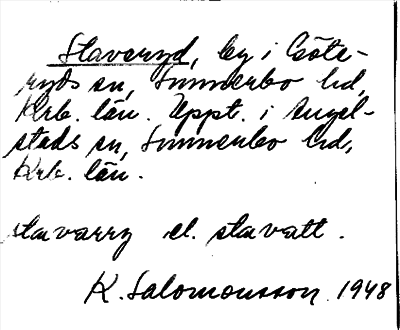 Staveryd, by i Göte-
ryds sn, Sunnerbo hd,
Krb. län. Uppt. i Angel-
stads sn, Sunnerbo hd,
Krb. län.
stavarry el. stavatt.
K. Salomonsson 1948